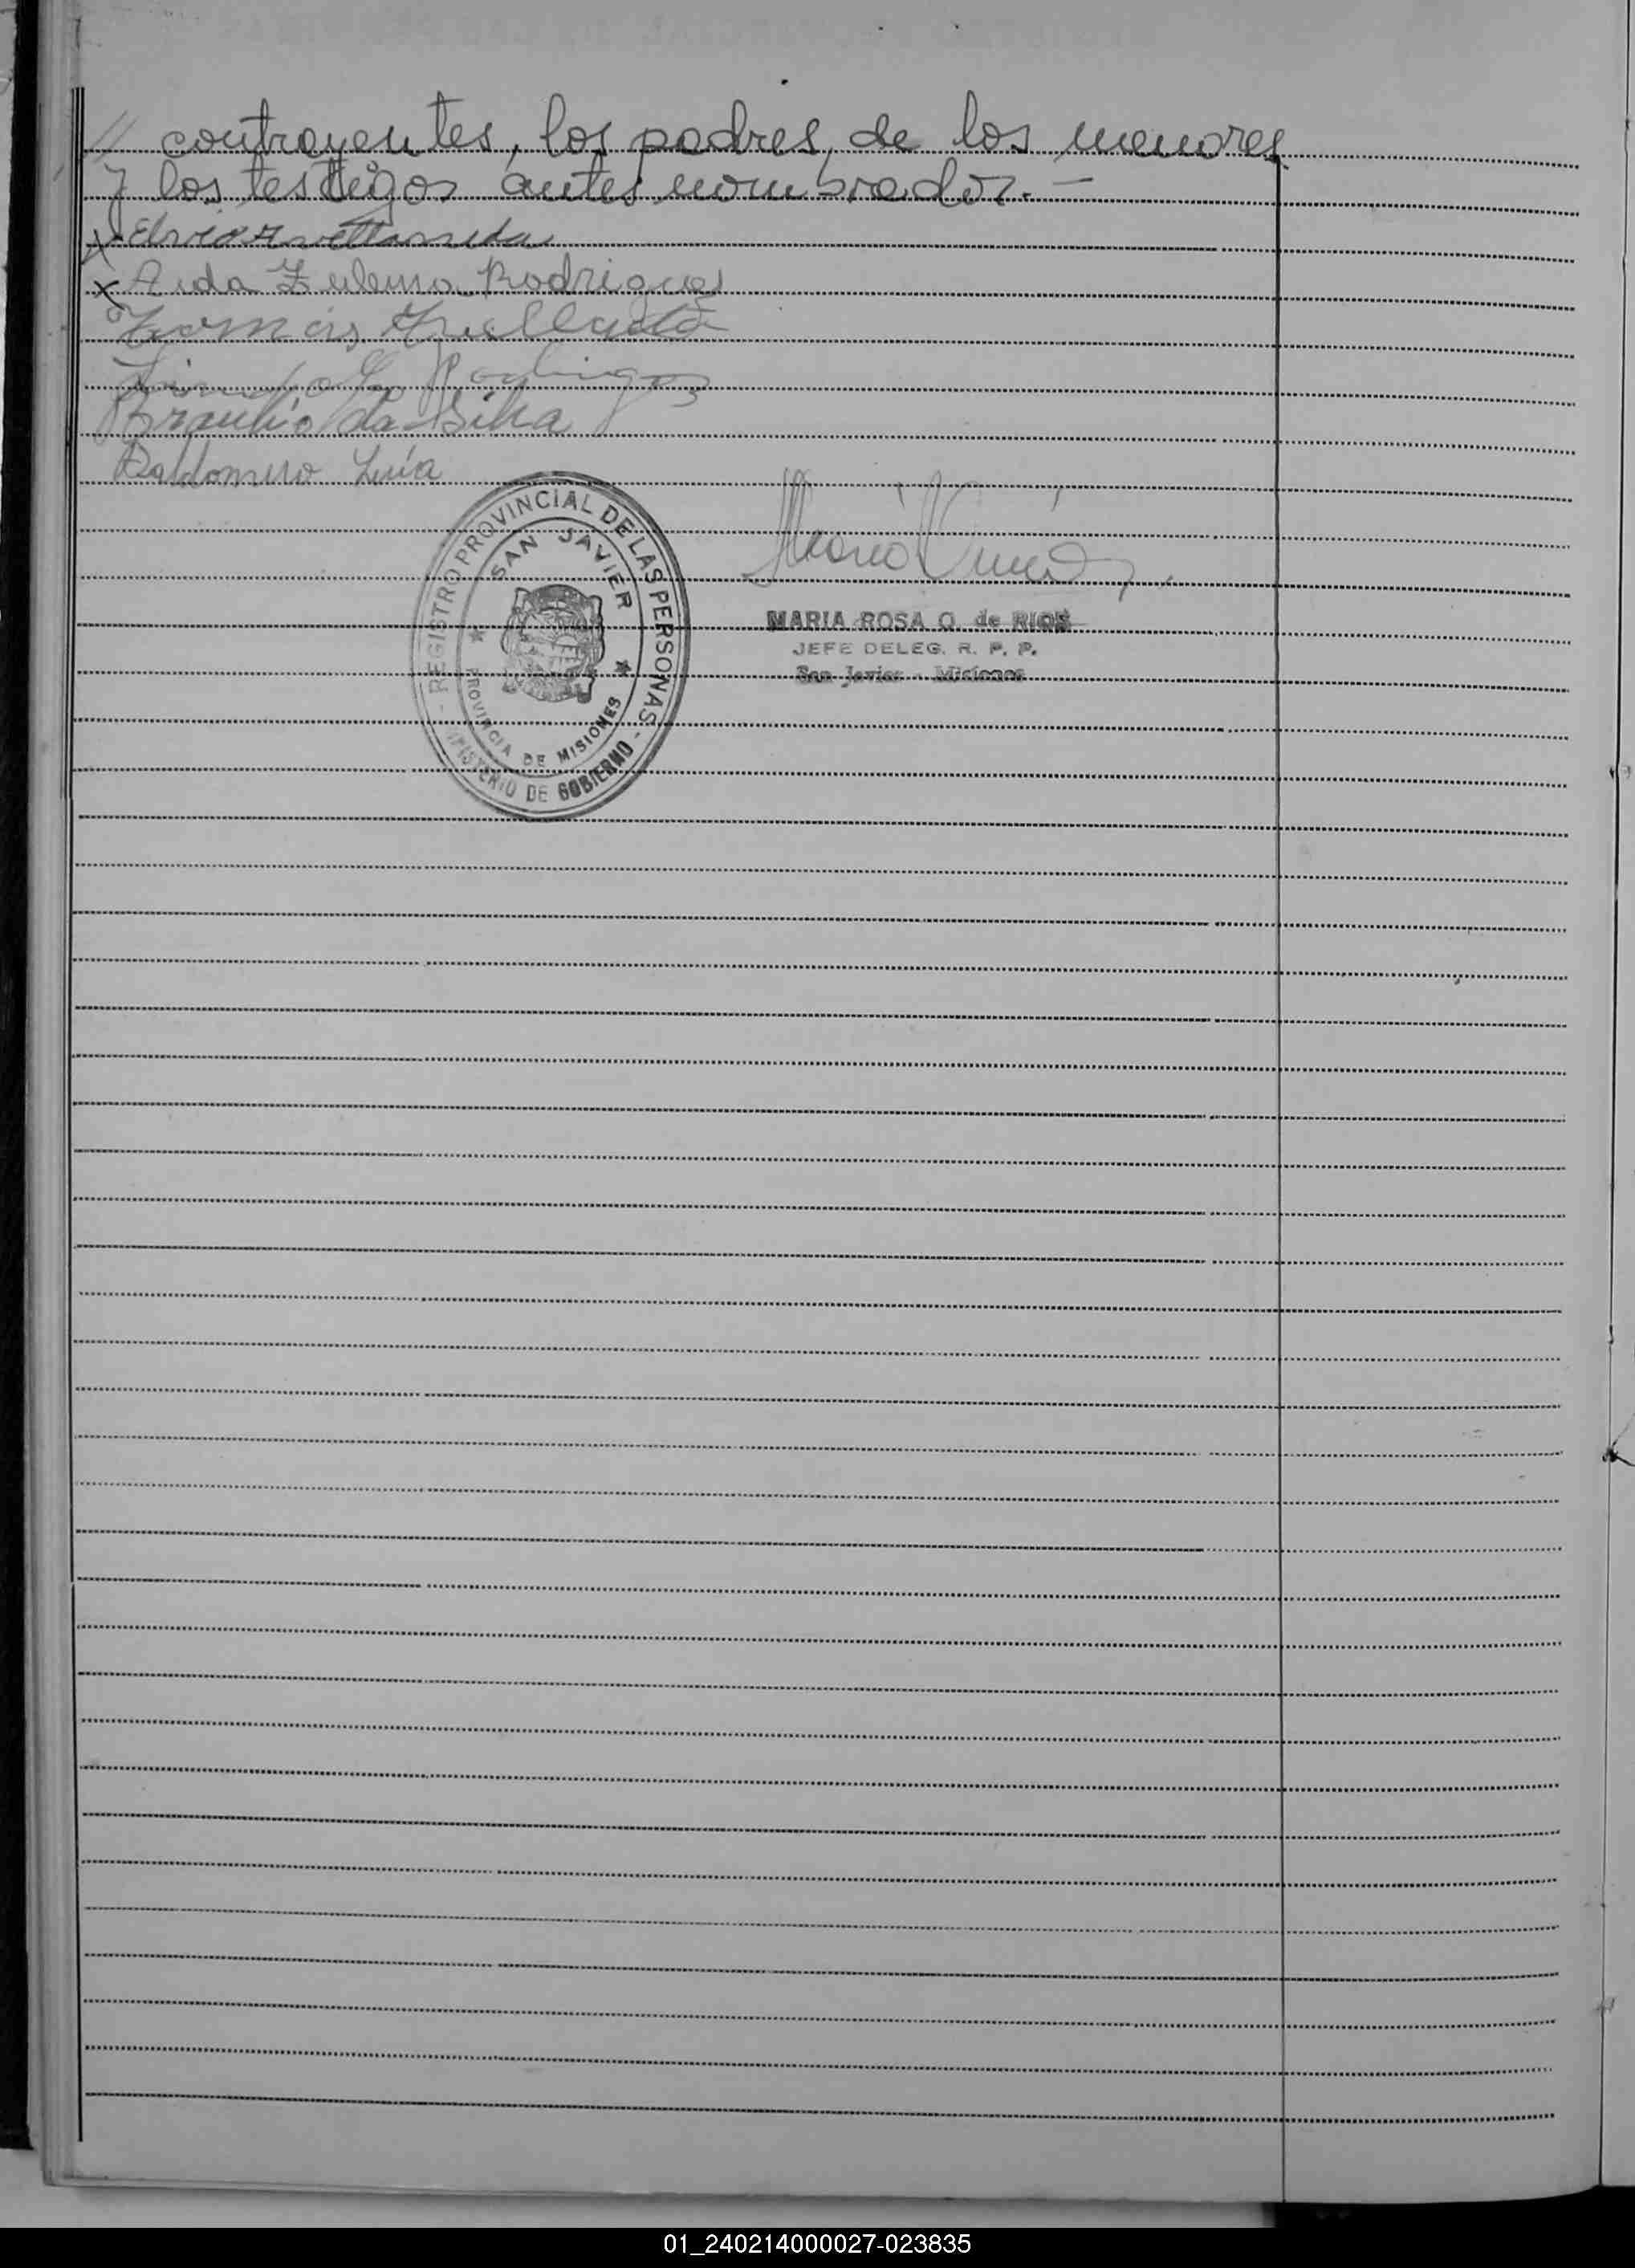 // contrayentes, los padres de los menores
y los testigos antes nombrados.—
x
x Aida Zulema Rodriguez
Tomás
Rodriguez
Braulio da Silva
Baldomero Luía
REGISTRO PROVINCIAL DE LAS PERSONAS - MINISTERIO DE GOBIERNO -
SAN JAVIER
PROVINCIA DE MISIONES
MARIA ROSA O. de RIOS
JEFE DELEG. R. P. P.
San Javier - Misiones
01_240214000027-023835